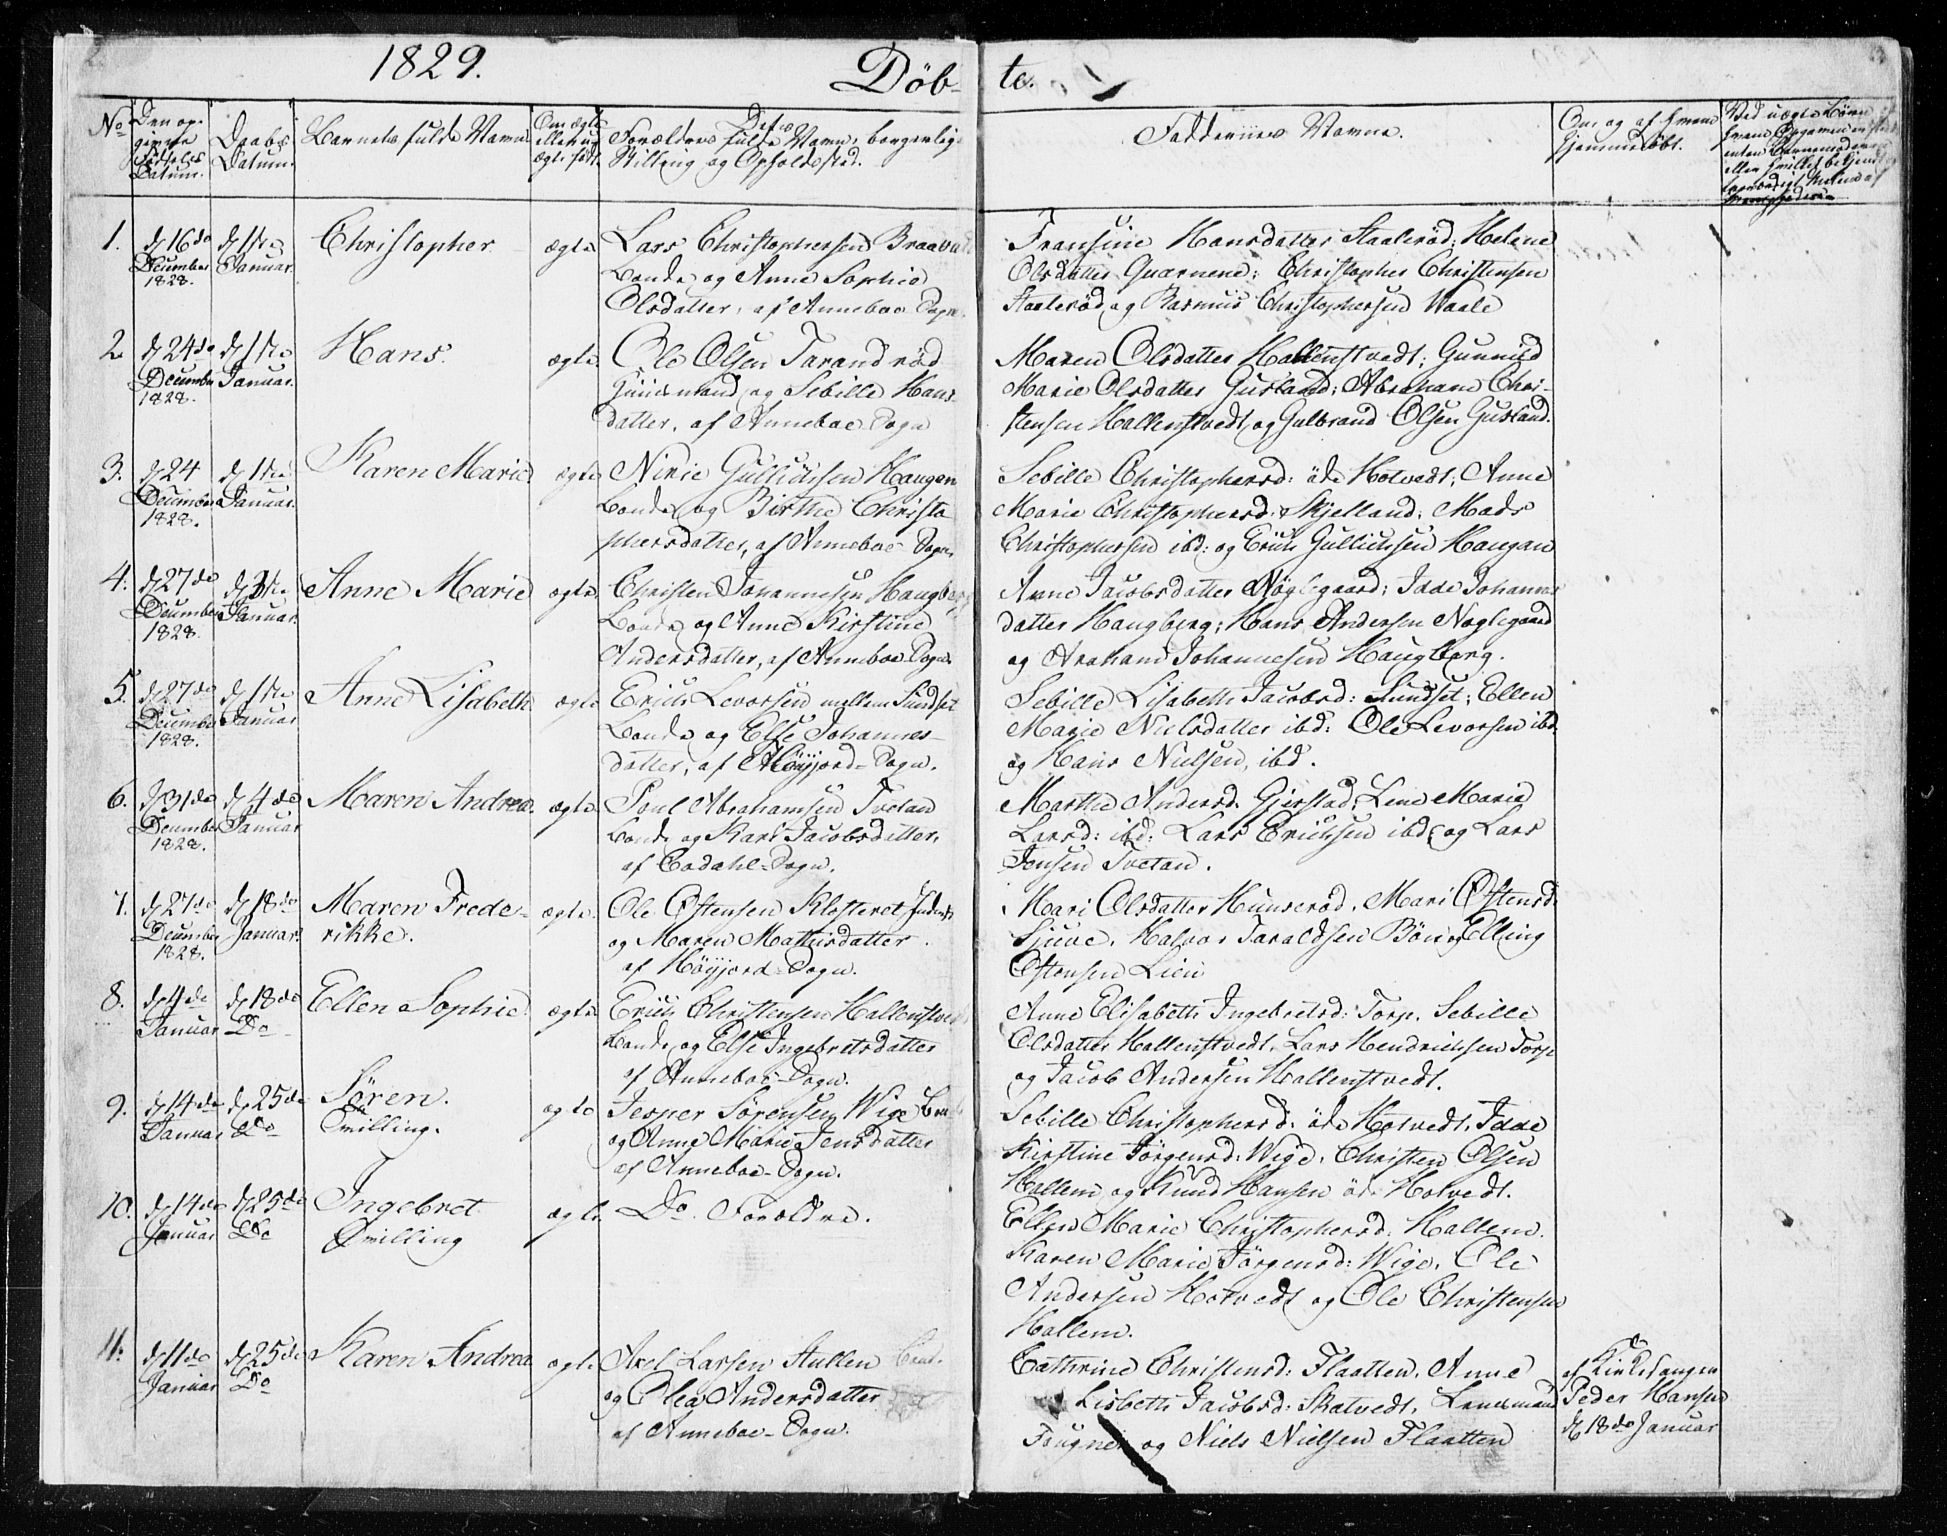 1829.
Döb-te.
No
Den opgivne Fødsels Datum.
Daabs Datum.
Barnets fulde Navn
Om ægte eller uægte født.
Forældres fulde Navn, borgerlige Stilling og Opholdsted.
Faddernes Navne.
Om og af hvem hjemmedøbt.
1.
d 16de December 1828.
d 1ste Januar.
Christopher
ægte
Lars Christophersen
Bonde og Anne Sophie
Olsdatter, af Anneboe Sogn.
Fransine Hansdatter Staalerød; Helene
Olsdatter Quernene; Christopher Christensen
Staalerød og Rasmus Christophersen Waale
2
d 24de December 1828.
d 1ste Januar.
Hans.
ægte
Ole Olsen Tarandrød
Huusmand og Sebille Hans-
datter, af Anneboe Sogn
Maren Olsdatter Hallenstvedt; Gunnild
Marie Olsdatter Gusland; Abraham Chri-
stensen Hallenstvedt og Gulbrand Olsen Gusland.
3.
d 24 December 1828.
d 1ste Januar.
Karen Marie
ægte
Gullichsen Haugen
Bonde og Birthe Christo
phersdatter, af Anneboe Sogn.
Sebille Christophersd: öde Hotvedt; Anne
Marie Christophersd: Skjelland; Mads
Christophersen ibd: og Erich Gullichsen Haugan
4.
d 27de December 1828.
Januar.
Anne Marie
ægte
Christen Johannesen Haugberg
Bonde og Anne Kirstine
Andersdatter, af Anneboe Sogn.
Anne Jacobsdatter Nöglegaard; Idde Johannes
datter Haugberg; Hans Andersen Nøglegaard
og Araham Johannesen Haugberg.
5.
d 27de December 1828.
d 1ste Januar
Anne Lisabeth
ægte
Erich Levorsen mellem Sundset
Bonde og Else Johannes-
datter, af Höyjord-Sogn.
Sebille Lisabeth Jacobsd: Sundset; Ellen
Marie Nielsdatter ibd: Ole Levorsen ibd.
og Hans Nielsen, ibd.
6.
d 31de December 1828.
d 4de Januar
Maren Andrea.
ægte
Poul Abrahamsen Tvetan
Bonde og Kari Jacobsdatter,
af Sogn.
Marthe Andersd. Gjerstad; Lene Marie
Larsd: ibd: Lars Erichsen ibd; og Lars
Jensen Tvetan.
7.
d 27de December 1828.
d 18de Januar.
Maren Frede-
rikke.
ægte
Ole Ostensen Klosteret Inderst
og Maren
af Höyjord-Sogn.
Mari Olsdatter Hunserød. Mari Ostensd.
Sjuve. Halvor Taraldsen Bön og Elling
Ostensen Lien
8.
d 4de Januar
d 18de Do
Ellen Sophie
ægte
Erich Christensen Hallenstvedt
Bonde og Else Ingebretsdatter
af Anneboe-Sogn.
Anne Elisabeth Ingebretsd: Torp. Sebille
Olsdatter Hallenstvedt. Lars Hendrichsen Torp
og Jacob Andersen Hallenstvedt.
9.
d 14de Januar
d 25de Do
Sören.
Tvilling.
ægte
Jesper Sörensen Wige
og Anne Marie Jensdatter
af Anneboe-Sogn.
Sebille Christophersd: öde Hotvedt. Idde
Kirstine Jörgensd: Wige. Christen Olsen
Hallem og Knud Hansen öde Hotvedt.
10.
d 14de Januar
d 25de Do
Ingebret
Tvilling
ægte
Do. Foroldre.
Ellen Marie Christophersd: Hallem.
Karen Marie Jörgensd: Wige. Ole
Andersen Hotvedt og Ole Christensen
Hallem.
11.
d 11de Januar
d 25de Do
Karen Andrea
ægte
Axel Larsen Aullen
og Olea Andersdatter
af Anneboe-Sogn.
Cathrine Christensd: Flaatten. Anne
Lisbeth Jacobsd: Skatvedt. Lensmand
Fougner og Niels Nielsen Flaatten
af Kirkesanger
Peder Hansen
d 18de Januar